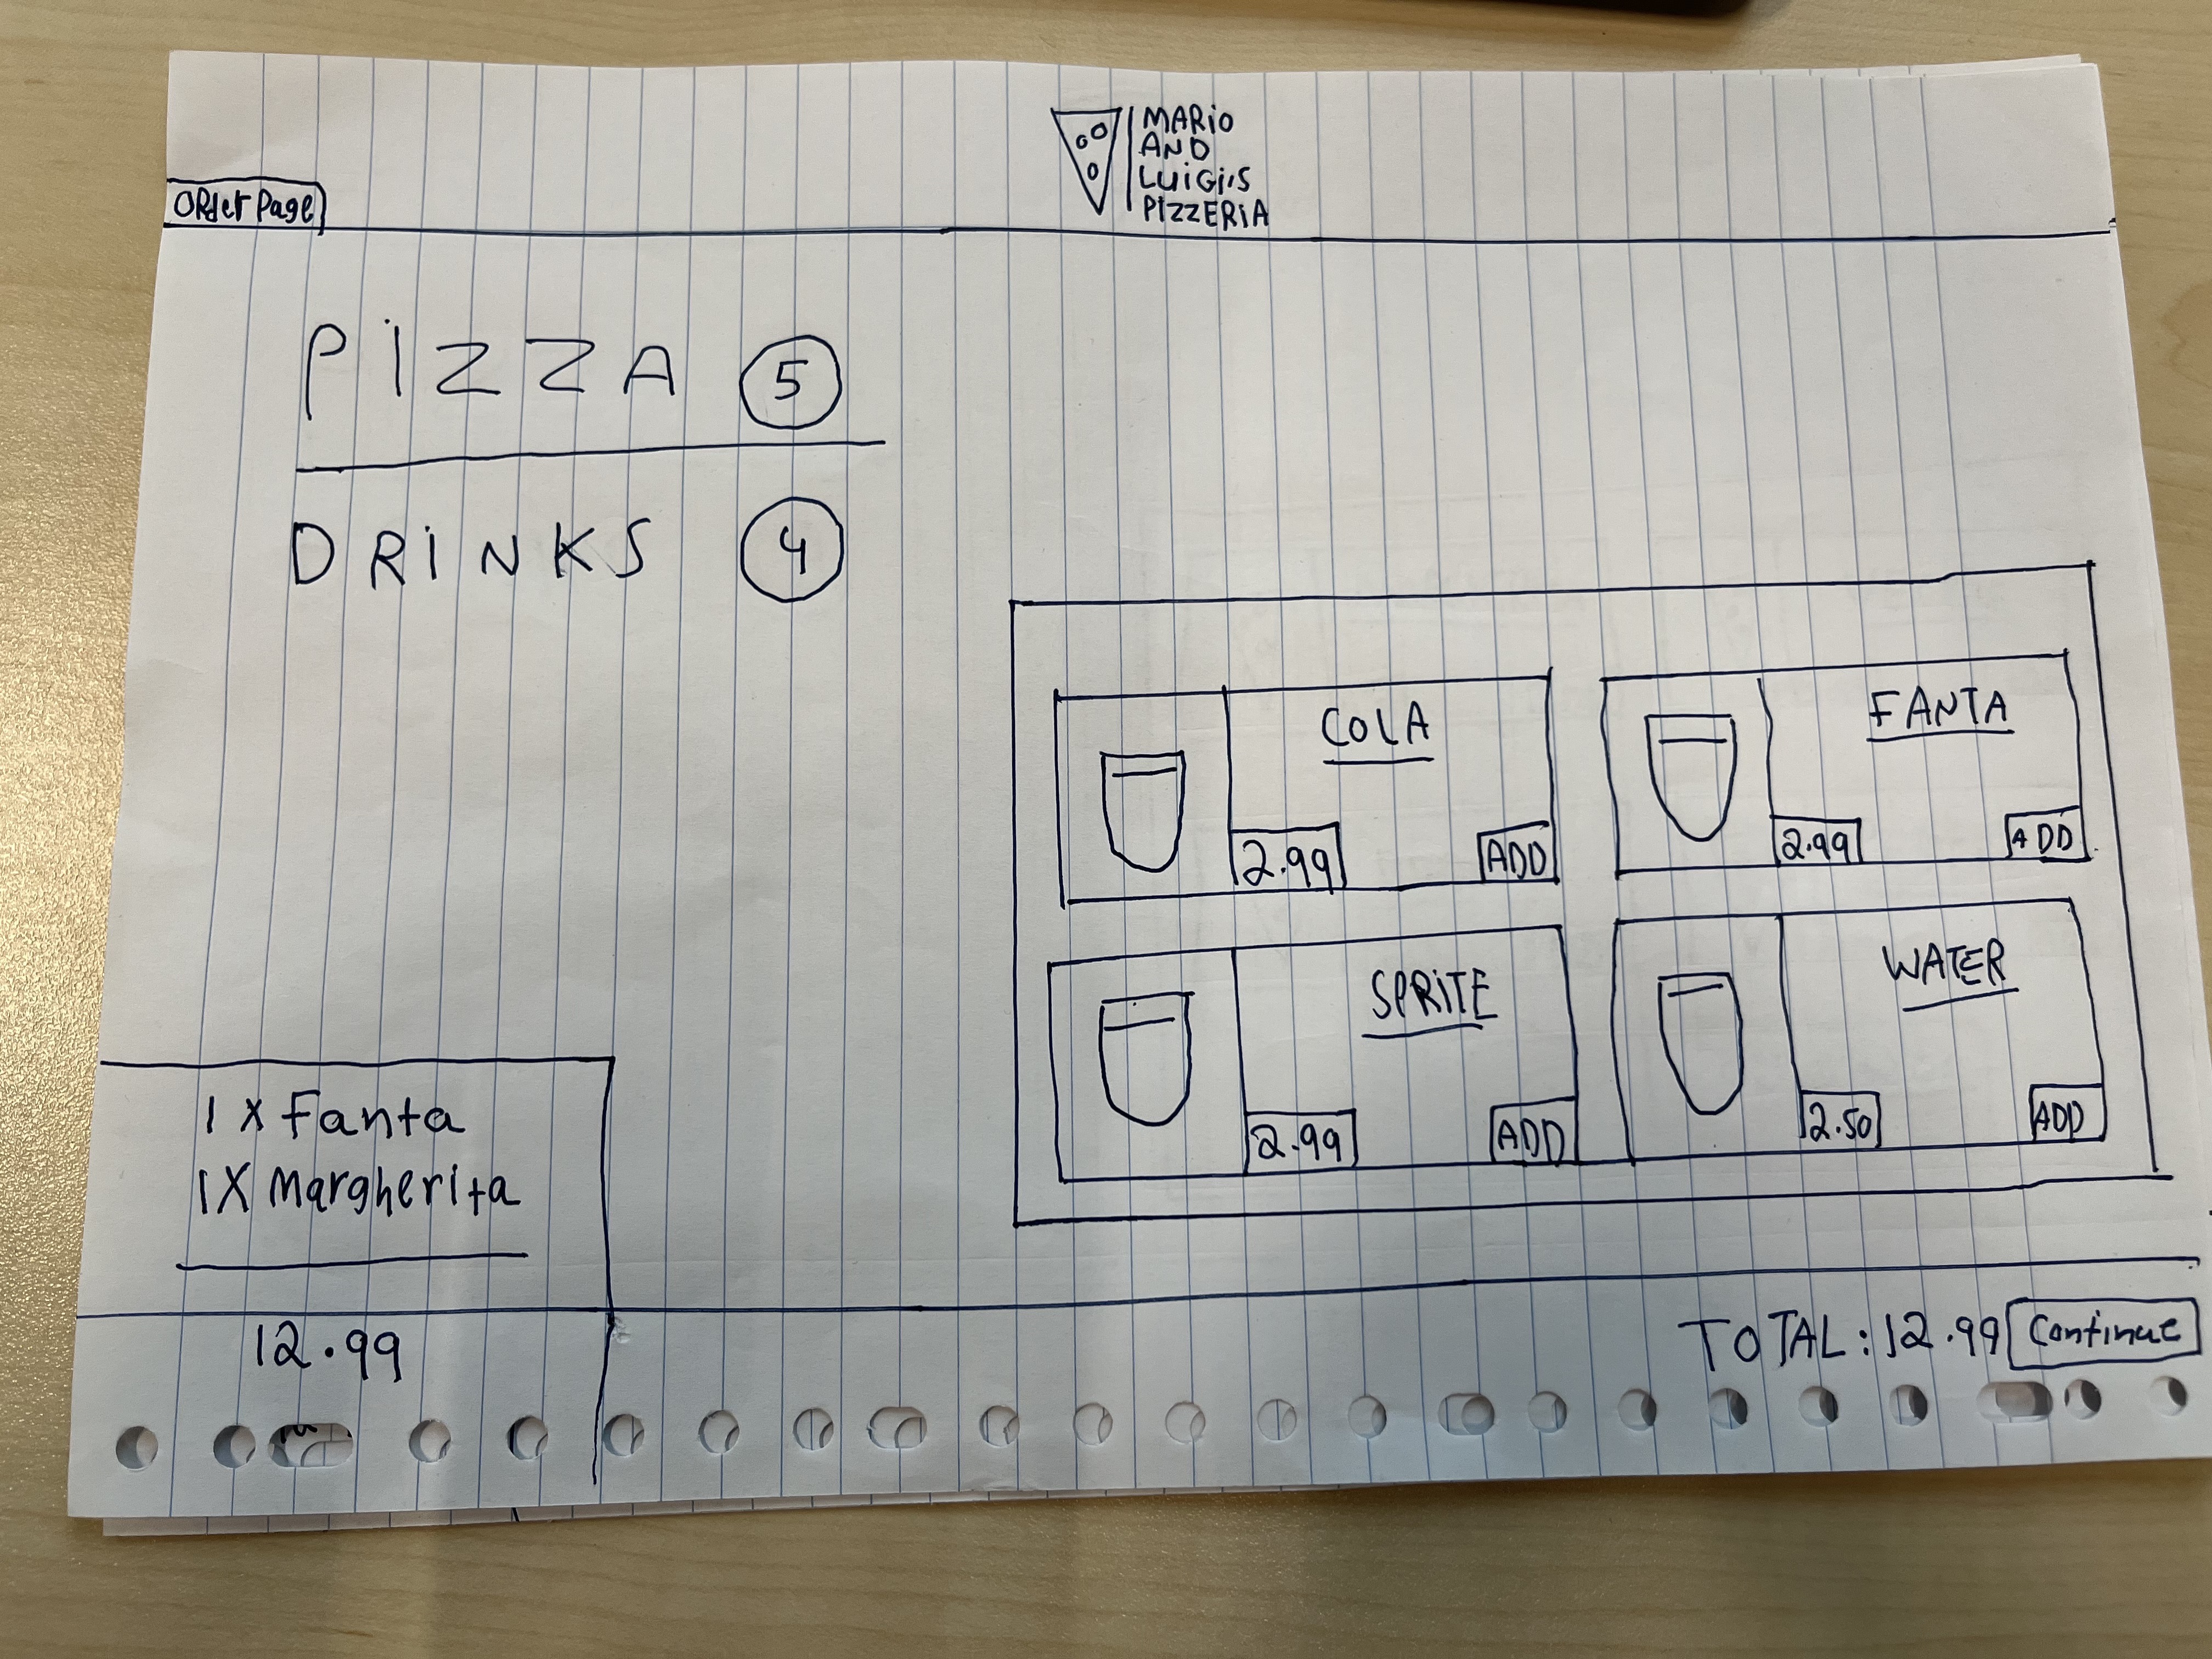 MARiO
AND
LUiGi'S
PIZZERiA
ORder Page
PiZZA 5
DRiNKS 4
COLA
2.99
ADD
FANTA
2.99
ADD
SPRiTE
2.99
ADD
WATER
2.50
ADD
1 x Fanta
1X Margherita
12.99
TOTAL: 12.99 Continue